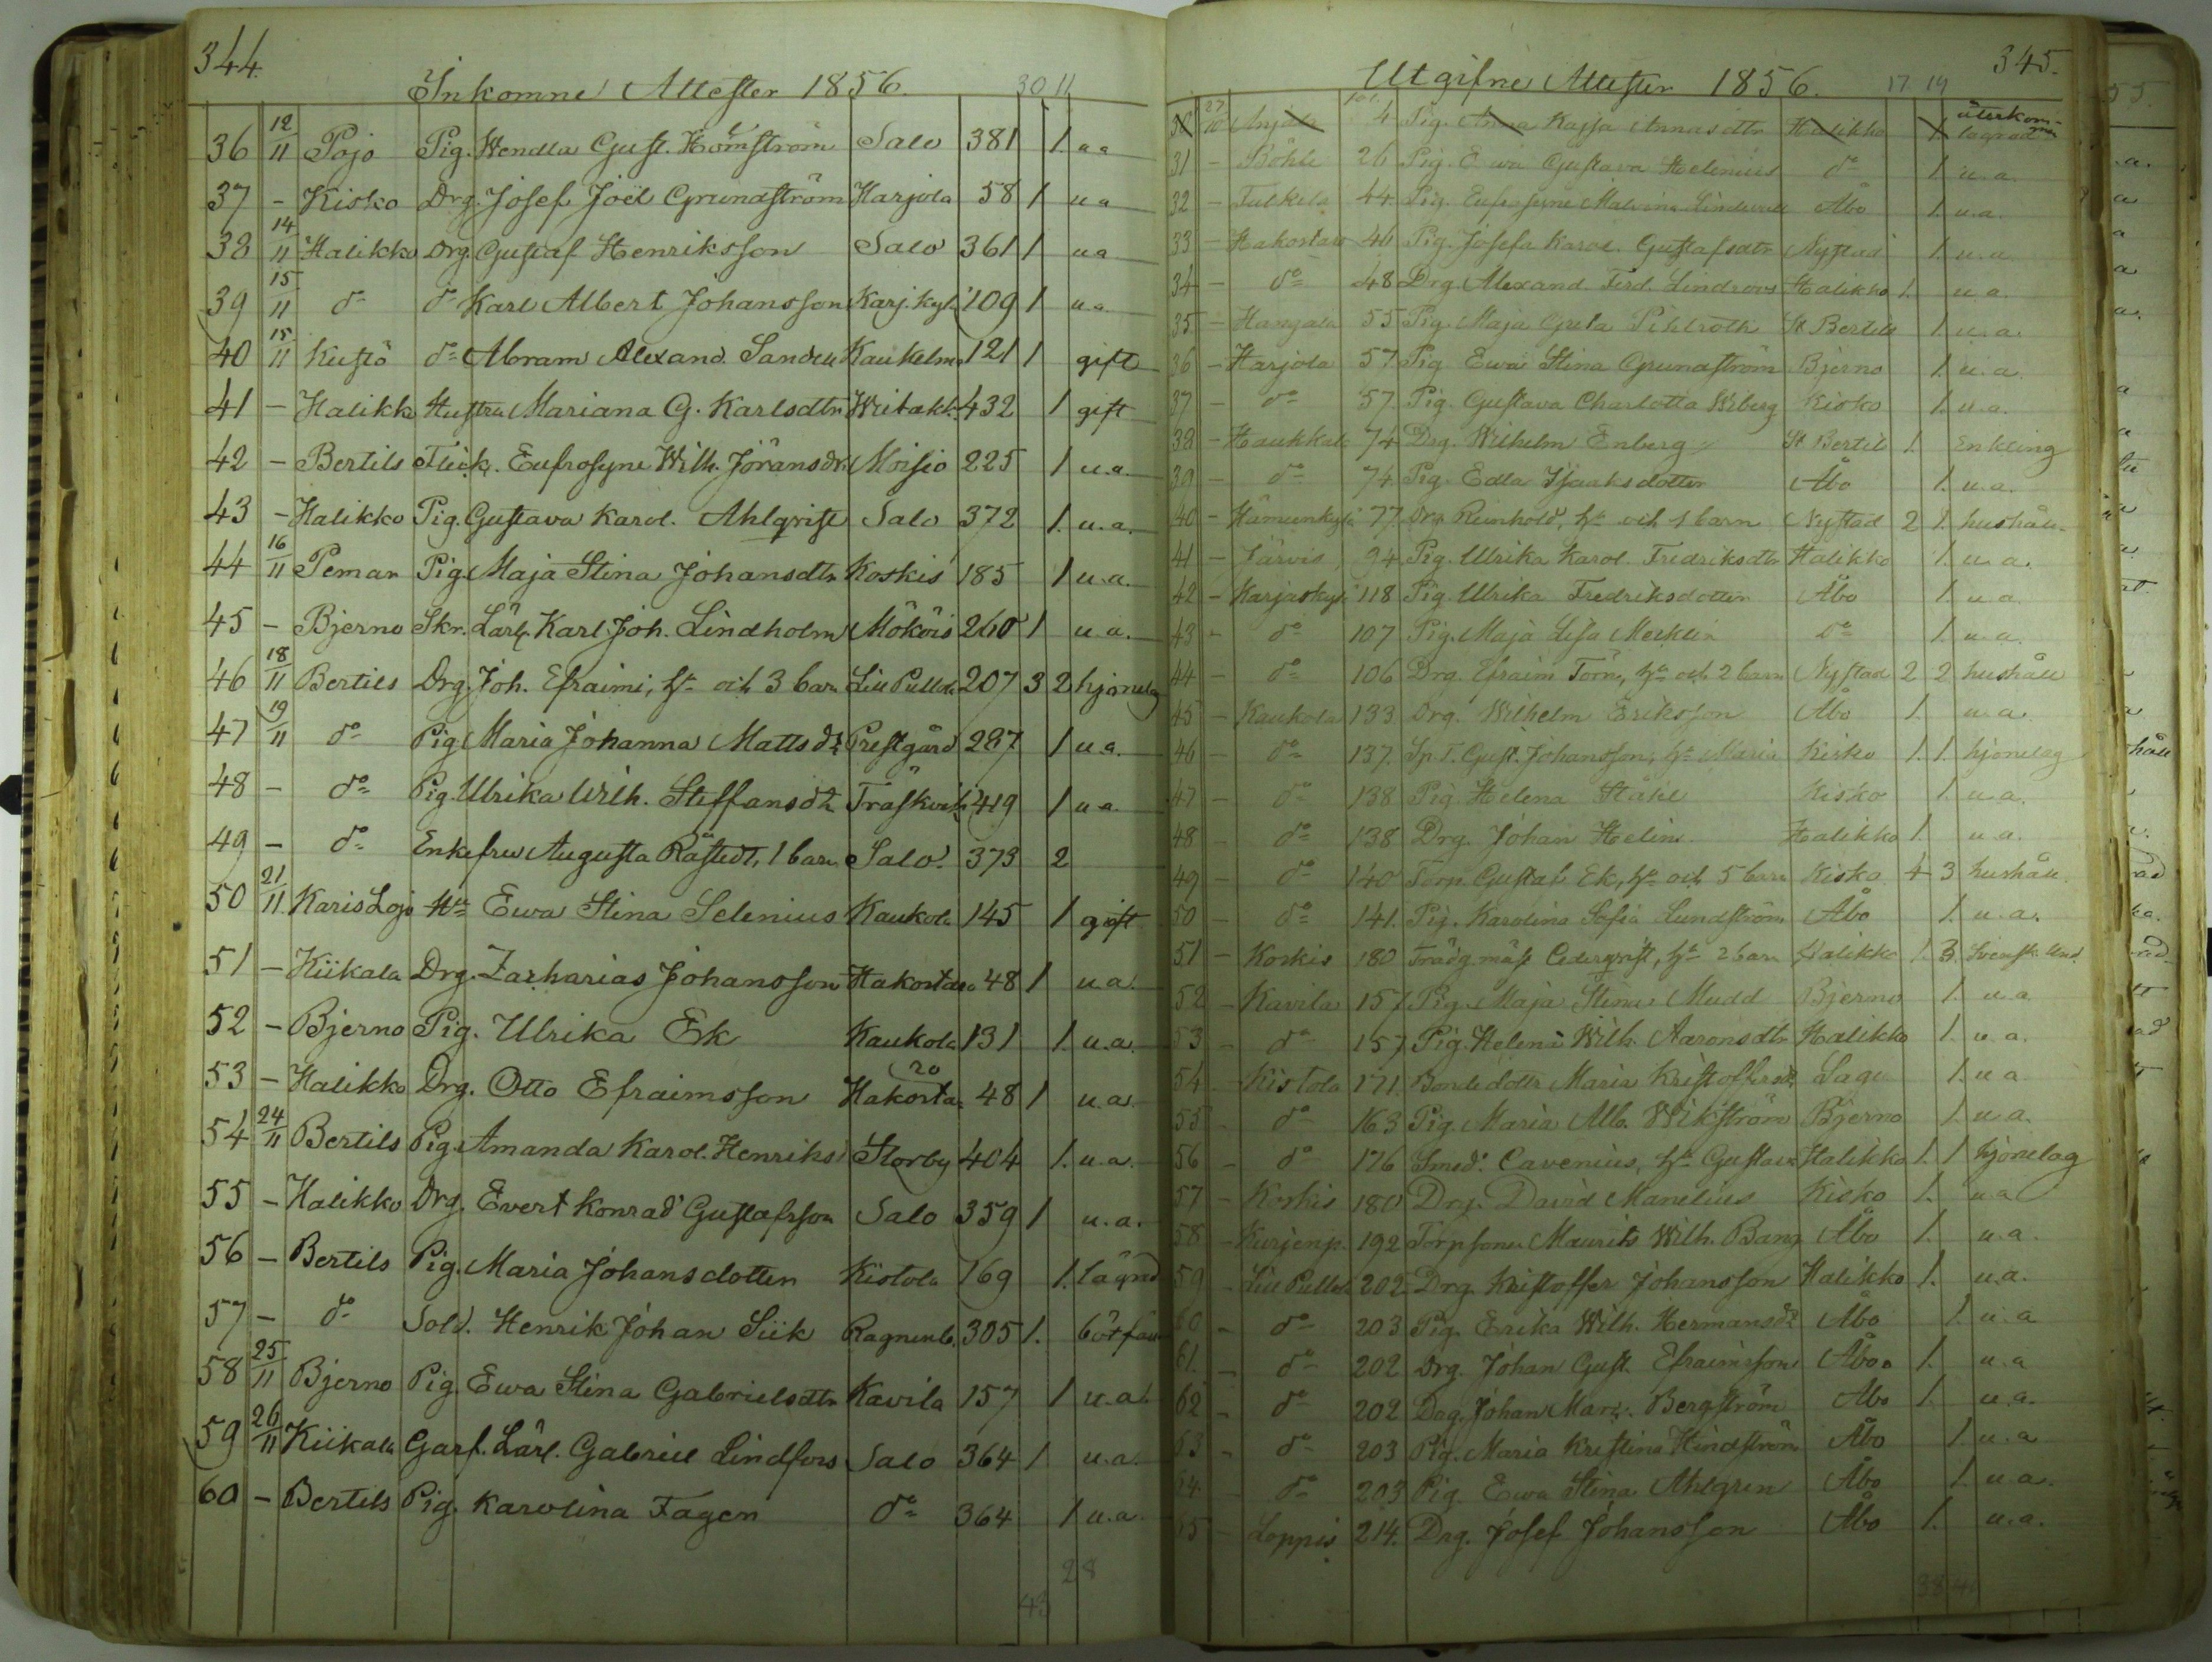 344.
Inkomne Attester 1856. 30 11
36 12/11 Pojo Pig. Wendla Gust. Homström Salo 381 1. u a
37 - Kisko Drg. Josef Joël Grundström Harjola 58 1 u a
38 14/11 Halikko Drg. Gustaf Henriksson Salo 361 1 u a
39 15/11 do do Karl Albert Johansson Karj.kyl. 109 1 u.a.
40 15/11 Kustö do Abram Alexand. Sandell Kaukelma 121 1 gift
41 - Halikko Hustru Mariana G. Karlsdtr 432 1 gift
42 - Bertils Flick. Eufrosyne Wilh. Göransdr. Moisio 225 1 u.a.
43 - Halikko Pig. Gustava Karol. Ahlqvist Salo 372 1. u.a.
44 16/11 Pemar Pig. Maja Stina Johansdtr Koskis 185 1 u.a.
45 - Bjerno Skr. Lärl. Karl Joh. Lindholm Mököis 260 1 u.a.
46 18/11 Bertils Drg. Joh. Efraimi, hu och 3 barn Lill Pullola 207 3 2 hjonelag
47 19/11 do Pig. Maria Johanna Mattsdr Prestgård 287 1 u.a.
48 - do Pig. Ulrika Wilh. Steffansdr 419 1 u a.
49 - do Enkefru Augusta Råstedt, 1 barn Salo. 373 2
50 21/11 Karis Lojo Hu Ewa Stina Selenius Kaukola 145 1 gift
51 - Kiikala Drg. Zacharias Johansson Hakostaro 48 1 u.a.
52 - Bjerno Pig. Ulrika Ek Kaukola 131 1. u.a.
53 - Halikko Drg. Otto Efraimsson Hakostaro 48 1 u.a.
54 24/11 Bertils Pig. Amanda Karol. Henriksd Storby 404 1. u.a.
55 - Halikko Drg. Evert Konrad Gustafsson Salo 359 1 u.a.
56 - Bertils Pig. Maria Johansdotter Kistola 169 1. lägrad
57 - do Sold. Henrik Johan Siik Ragnenb. 305 1. bötfäld
58 25/11 Bjerno Pig. Ewa Stina Gabrielsdtr Kavila 157 1 u.a.
59 26/11 Kiikala Garf. Lärl. Gabriel Lindfors Salo 364 1 u.a.
60 - Bertils Pig. Karolina Fagen do 364 1 u.a.
28
43
345.
Utgifne Attester 1856. 17 19
30 27/10 Anjala 4 Pig. Anna Kajsa Annasdtr Halikko 1. återkommen lägrad
31 - Böhle 26 Pig. Ewa Gustava Helenius do 1 u.a.
32 - Tulkela 44. Pig. Eufrosyne Malvina Lindevall Åbo 1. u.a.
33 - Hakostaro 46 Pig. Josefa Karol. Gustafsdtr Nystad 1. u.a.
34 - do 48 Drg. Alexand. Ferd. Lindroos Halikko 1. u.a.
35 - Hangala 55 Pig. Maja Greta Pihlroth St Bertils 1 u.a.
36 - Harjola 57 Pig. Ewa Stina Grundström Bjerno 1. u.a.
37 - do 57 Pig. Gustava Charlotta Wiberg Kisko 1. u.a.
38 - Haukkala 74 Drg. Wilhelm Enberg St Bertils 1. Enkling
39 - do 74 Pig. Edla Isaaksdotter Åbo 1. u.a.
40 - Hämeenkylä 77 Drg. Reinhold, hu och 1 barn Nystad 2 1. hushåll
41 - Järvis 94 Pig. Ulrika Karol. Fredriksdtr Halikko 1. u.a.
42 - Karjaskylä 118 Pig. Ulrika Fredriksdotter Åbo 1. u.a.
43 - do 107 Pig. Maja Lisa Mecklin do 1. u.a.
44 - do 106 Drg. Efraim Törn, hu och 2 barn Nystad 2 2 hushåll
45 - Kaukola 133 Drg. Wilhelm Eriksson Åbo 1. u.a.
46 - do 137. Sp.T. Gust. Johansson, hu Maria Kisko 1. 1. hjonelag
47 - do 138 Pig. Helena Ståhl Kisko 1. u.a.
48 - do 138 Drg. Johan Helin Halikko 1. u.a.
49 - do 140 Torp. Gustaf Ek, hu och 5 barn Kisko 4 3 hushåll.
50 - do 141. Pig. Karolina Sofia Lundström Åbo 1. u.a.
51 - Koskis 180 Trädg.mäst Cederqvist, hu 2 barn Halikko 1. 3. Svensk. Und.
52 - Kavila 157 Pig. Maja Stina Mudd Bjerno 1. u.a
53 - do 157 Pig. Helena Wilh. Aaronsdtr Halikko 1. u.a.
54 - Kistola 171. Bondedottr Maria Kristoffersdr Sagu 1. u.a
55 - do 163 Pig. Maria Alb. Wikström Bjerno 1. u.a.
56 - do 176 Smed. Cavenius, hu Gustava Halikko 1. 1 hjonelag
57 - Koskis 180 Drg. David Manelius Kisko 1. u.a
58 - Kurjenp. 192 Torpsonen Maurits Wilh. Bang Åbo 1. u.a.
59 - Lill Pullola 202 Drg. Kristoffer Johansson Halikko 1. u.a.
60 - do 203 Pig. Erika Wilh. Hermansdr Åbo 1. u.a
61. - do 202 Drg. Johan Gust. Efraimsson Åbo 1. u.a
62 - do 202 Drg. Johan Mart. Bergström Åbo 1. u.a.
63 - do 203 Pig. Maria Kristina Hindström Åbo 1. u.a
64 - do 203 Pig. Ewa Stina Ahlgren Åbo 1. u.a.
65 - Loppis 214. Drg. Josef Johansson Åbo 1. u.a.